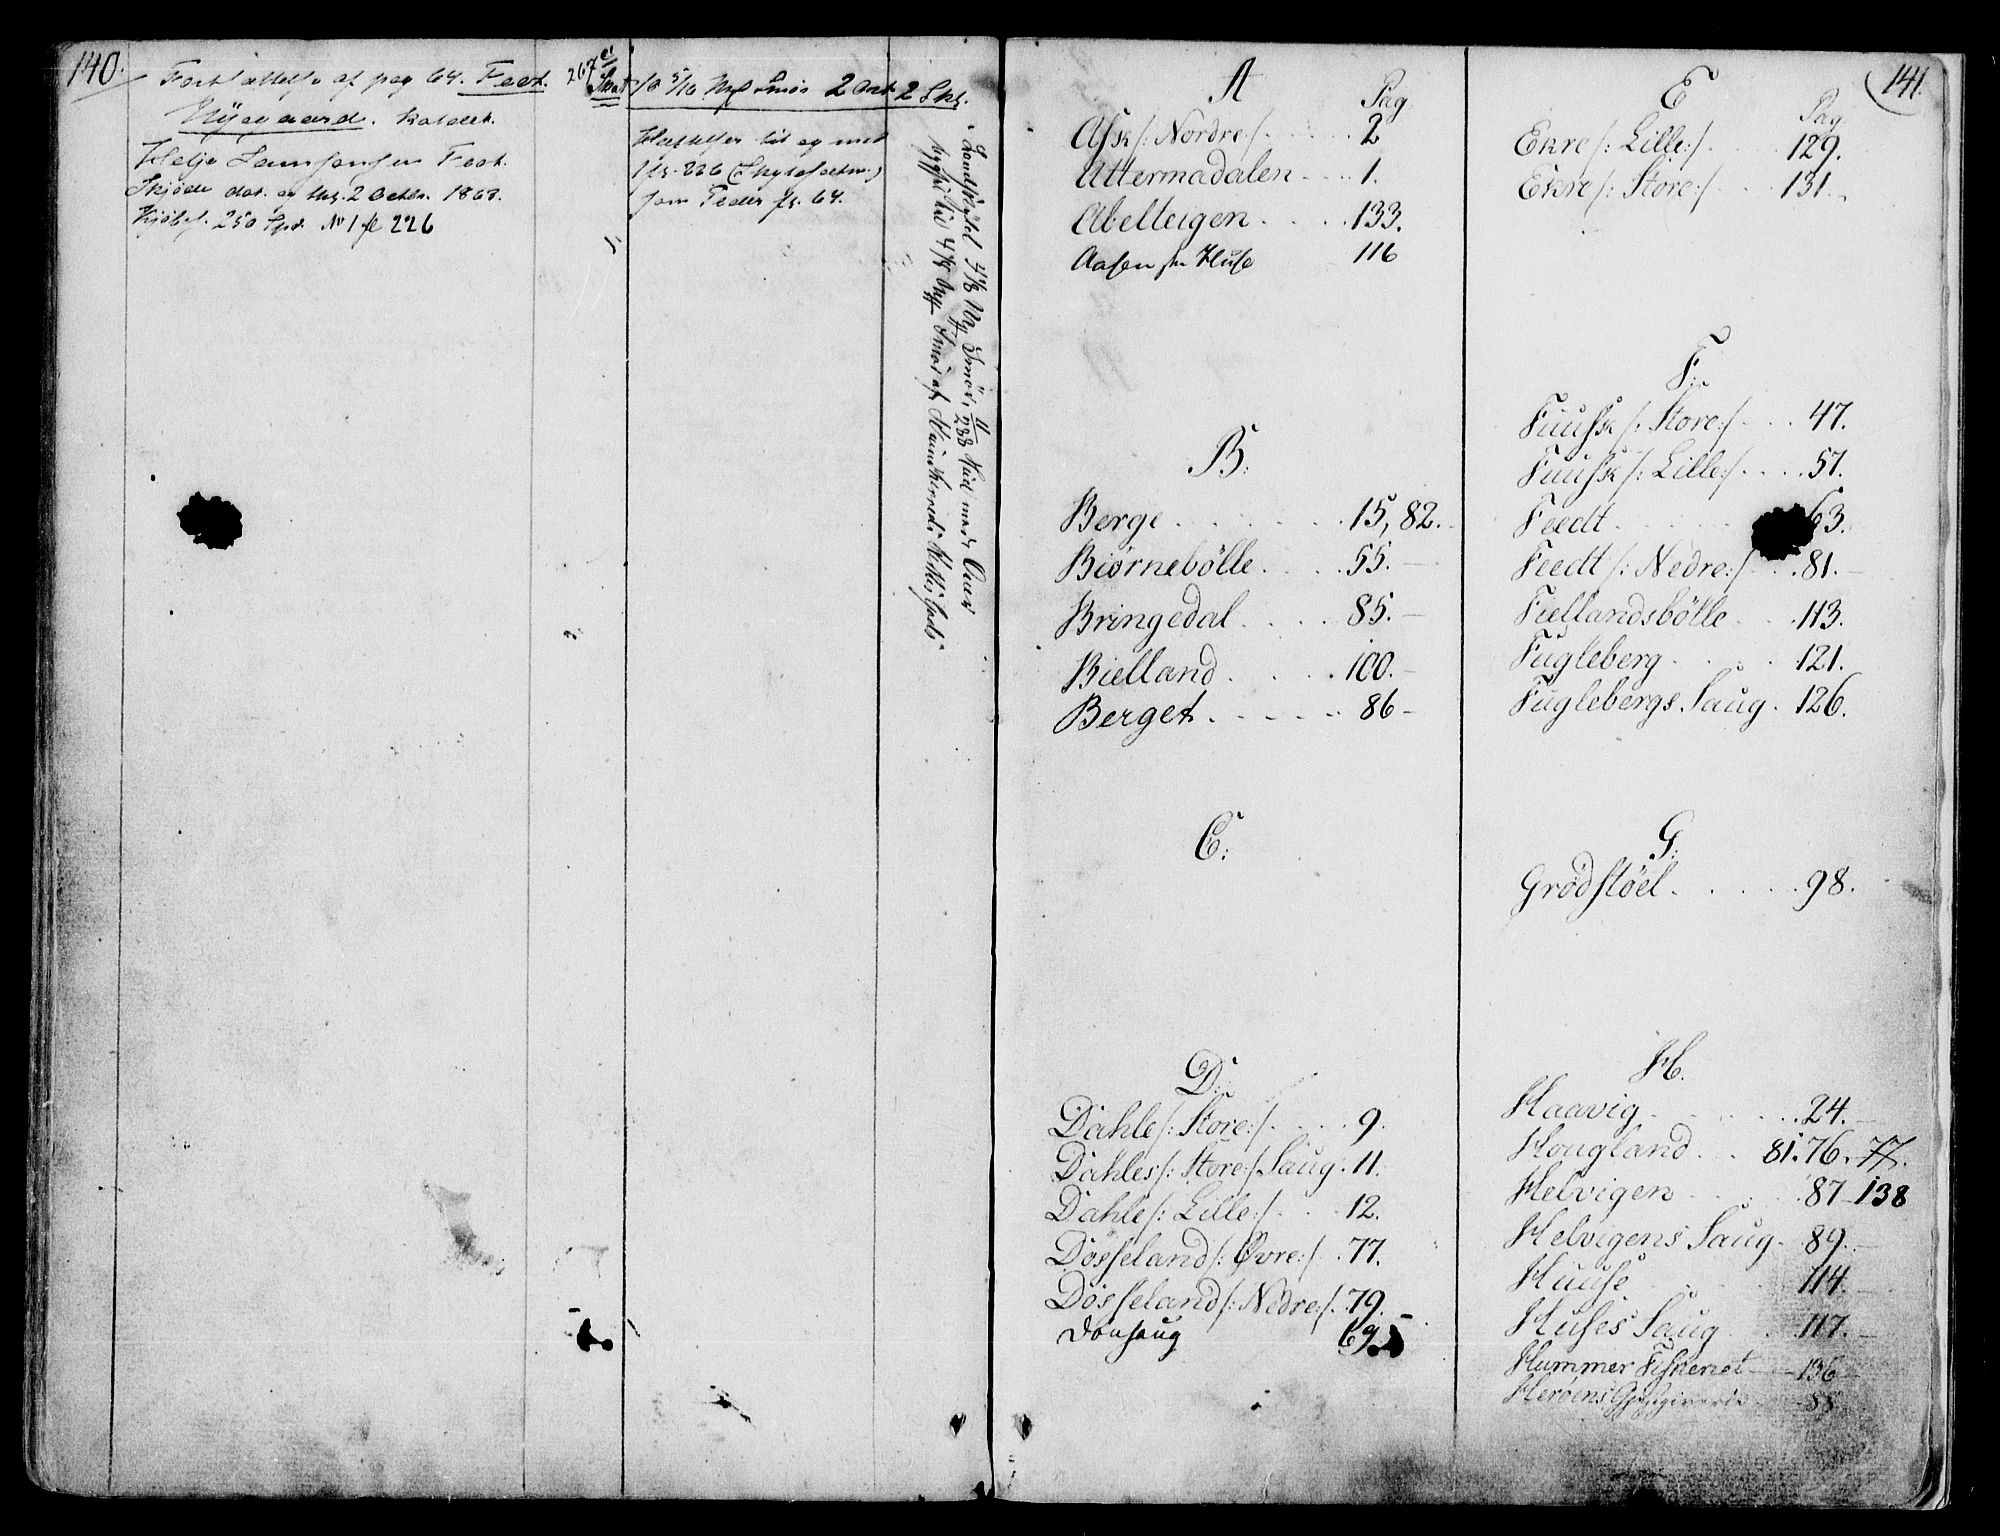 140.
Fortsættelse af pag 64. Feet.
Nÿegaard. kaldet.
Helje Samsonsen Feet.
Skjöde dat. og thgl. 2 Octbr. 1863.
Kjöbes. 250 Spd. No 1 fl 226
267 c
Skat
2 Ort 2 Skl.
Hæftelser til og med
som Feder fl. 64.
Smör, 11/288 Hud med Over
141.
A
Pag
Assk /: Nordre :/ . . . . . 2
Attermadalen . . . . 1.
Abelteigen . . . . 133.
Aasen /: Huse 116
B:
Berge . . . . . . 15, 82.
Biørnebölle . . . . 55.
Bringedal . . . . 85.
Bielland . . . . . 100.
Berget . . . . . 86
C:
D:
Dahle /: Store :/ . . . . 9.
Dahles /: Store :/ Saug . 11.
Dahle /: Lille :/ . . . . 12.
Dösseland /: Øvre :/ . 77.
Dösseland /: Nedre :/ . 79.
Dönsaug 69
E
Pag
Ekre /: Lille :/ . . . 129.
Ekre /: Store :/ . . . 131.
F:
Fuussk /: Store :/ . . . 47.
Fuussk /: Lille :/ . . . . 57.
Feedt . . . . . 63.
Feedt /: Nedre :/ . . 81.
Fiellandsbölle . . . 113.
Fugleberg . . . . . 121.
Fuglebergs Saug . 126.
G:
Grødstöel . . . . . 98.
H.
Haavig . . . . . 24.
Hougland . . 81. 76. 77.
Helvigen . . . . 87 138
Helvigens Saug . 89.
Huuse . . . . . 114.
Huses Saug . . . 117.
Hummer Fiskeriet 136
Herøens Gjæstgiverie 88